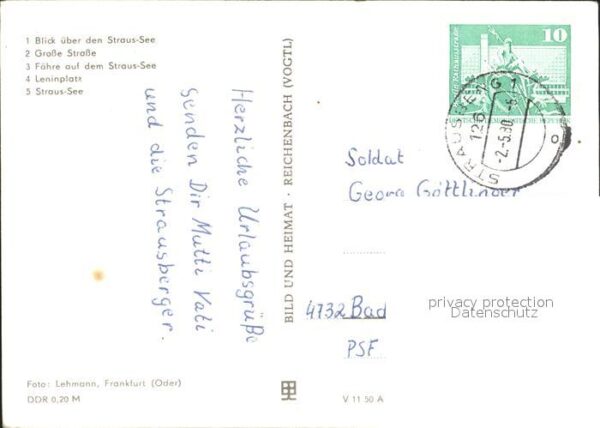 1 Blick über den Straus-See
2 Große Straße
3 Fähre auf dem Straus-See
4 Leninplatz
5 Straus-See
Herzliche Urlaubsgrüße
senden Dir Mutti Vati
und die Strausberger.
Foto: Lehmann, Frankfurt (Oder)
DDR 0,20 M
BILD UND HEIMAT · REICHENBACH (VOGTL)
V 11 50 A
10
STRAUSBERG 1
126
-2.-5.80
Soldat
Georg Göttlinger
4732 Bad
PSF
privacy protection
Datenschutz